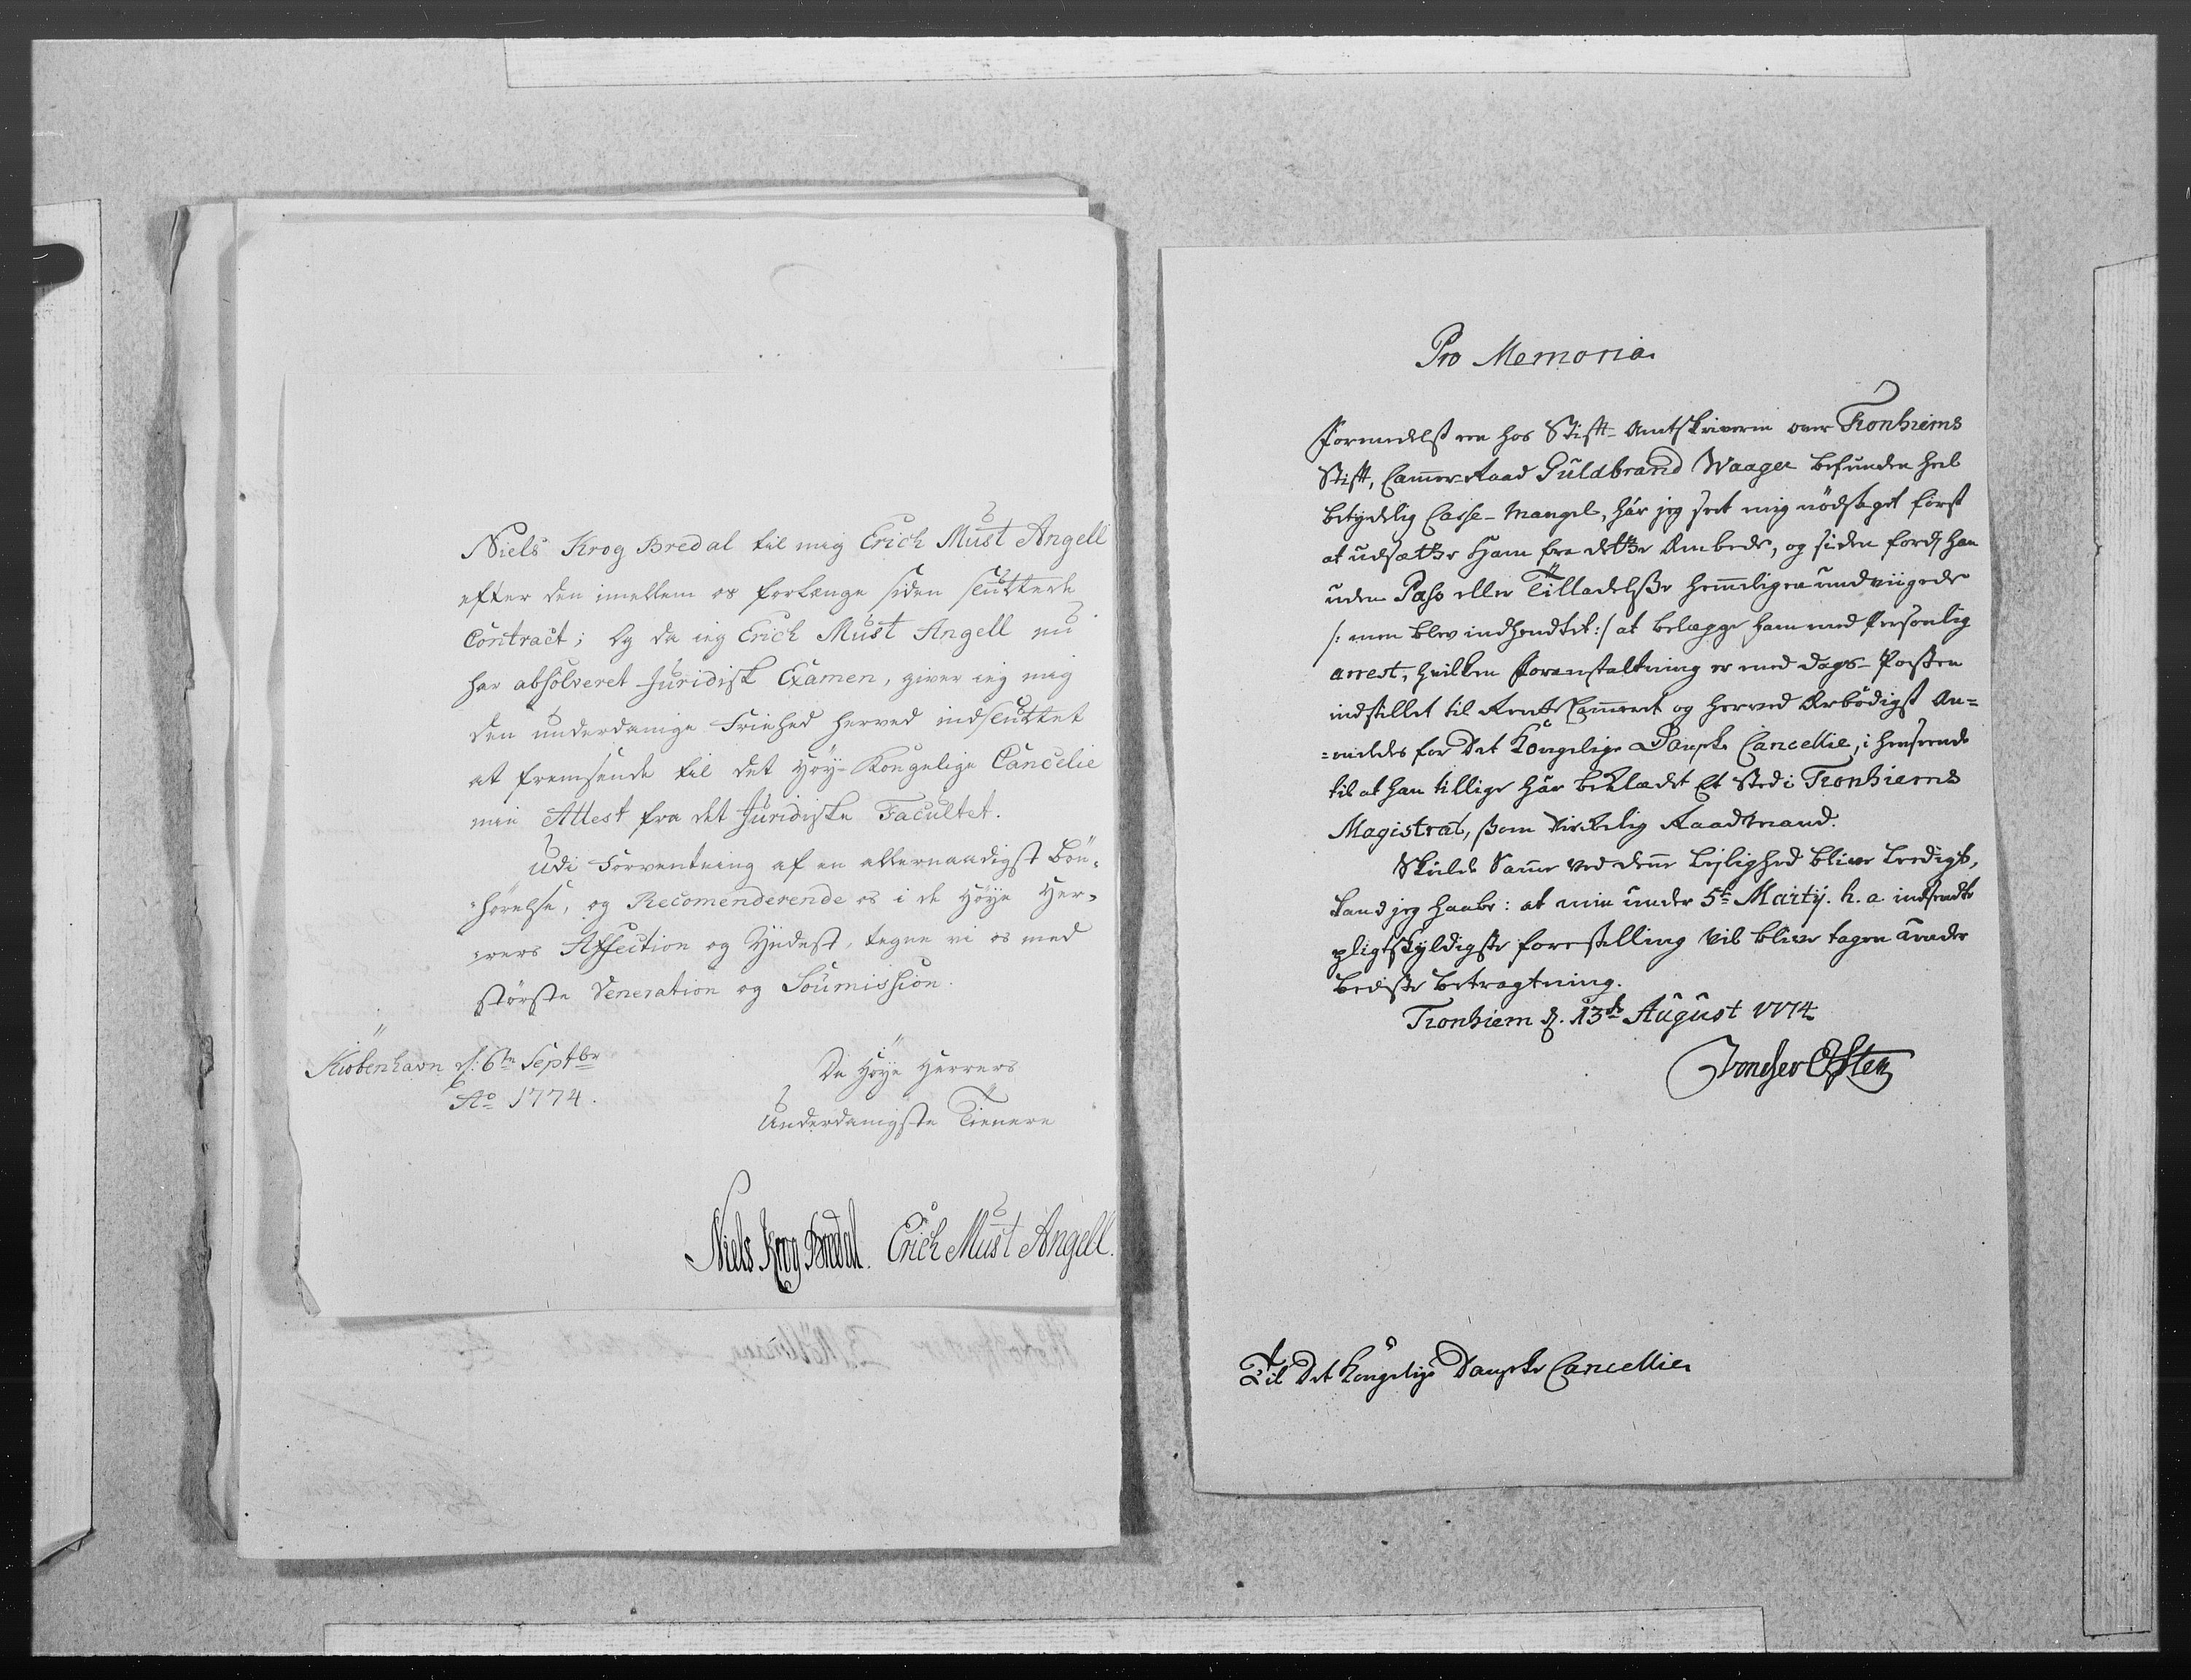 Niels Krog Bredal til mig Erich Must Angell
efter den imellem os forlænge siden sluttede
Contract; Og da ieg Erich Must Angell nu
har absolveret Juridisk Examen, giver ieg mig
den underdanige Friehed herved indsluttet
at fremsende til det Höy-Kongelige Cancelie
min Attest fra det Juridiske Facultet.
Udi Forventning af en allernaadigst Bön-
-hörelse, og Recomenderende os i de Höye Her-
-rers Affection og Yndest, tegne vi os med
störste Veneration og Soumission.
Kiöbenhavn d: 6te Septbr
Ao 1774.
De Höye Herrers
Underdanigste Tienere
Niels Krog Bredal. Erich Must Angell.
Pro Memoria
Formedelst een hos Stift-Amtskriveren over Tronhiems
Stift, Cammer-Raad Guldbrand Waager befunden heel
betydelig Casse-Mangel, har jeg seet mig nödsaget först
at udsætte Ham fra dette Embede, og siden fordj han
uden Pass eller Tilladelse hemmeligen undviigede
/: men blev indhendtet :/ at belægge ham med Personlig
arrest, hvilken Foranstaltning er med Dags-Posten
indstillet til Rente Cammeret og herved Ærbödigst An=
=meldes for Det Kongelige Danske Cancellie, i henseende
til at han tillige har beklædt Et Sted i Tronhiems
Magistrat, som virkelig Raadmand.
Skulde Samme ved denne Leylighed blive Leedigt,
tand jeg haabe: at min under 5te Martij h. a. indsendte
pligtskyldigste forestilling vil blive tagen under
beedste betragtning.
Tronhiem d. 13de August 1774
von der Osten
Til Det Kongelige Danske Cancellie